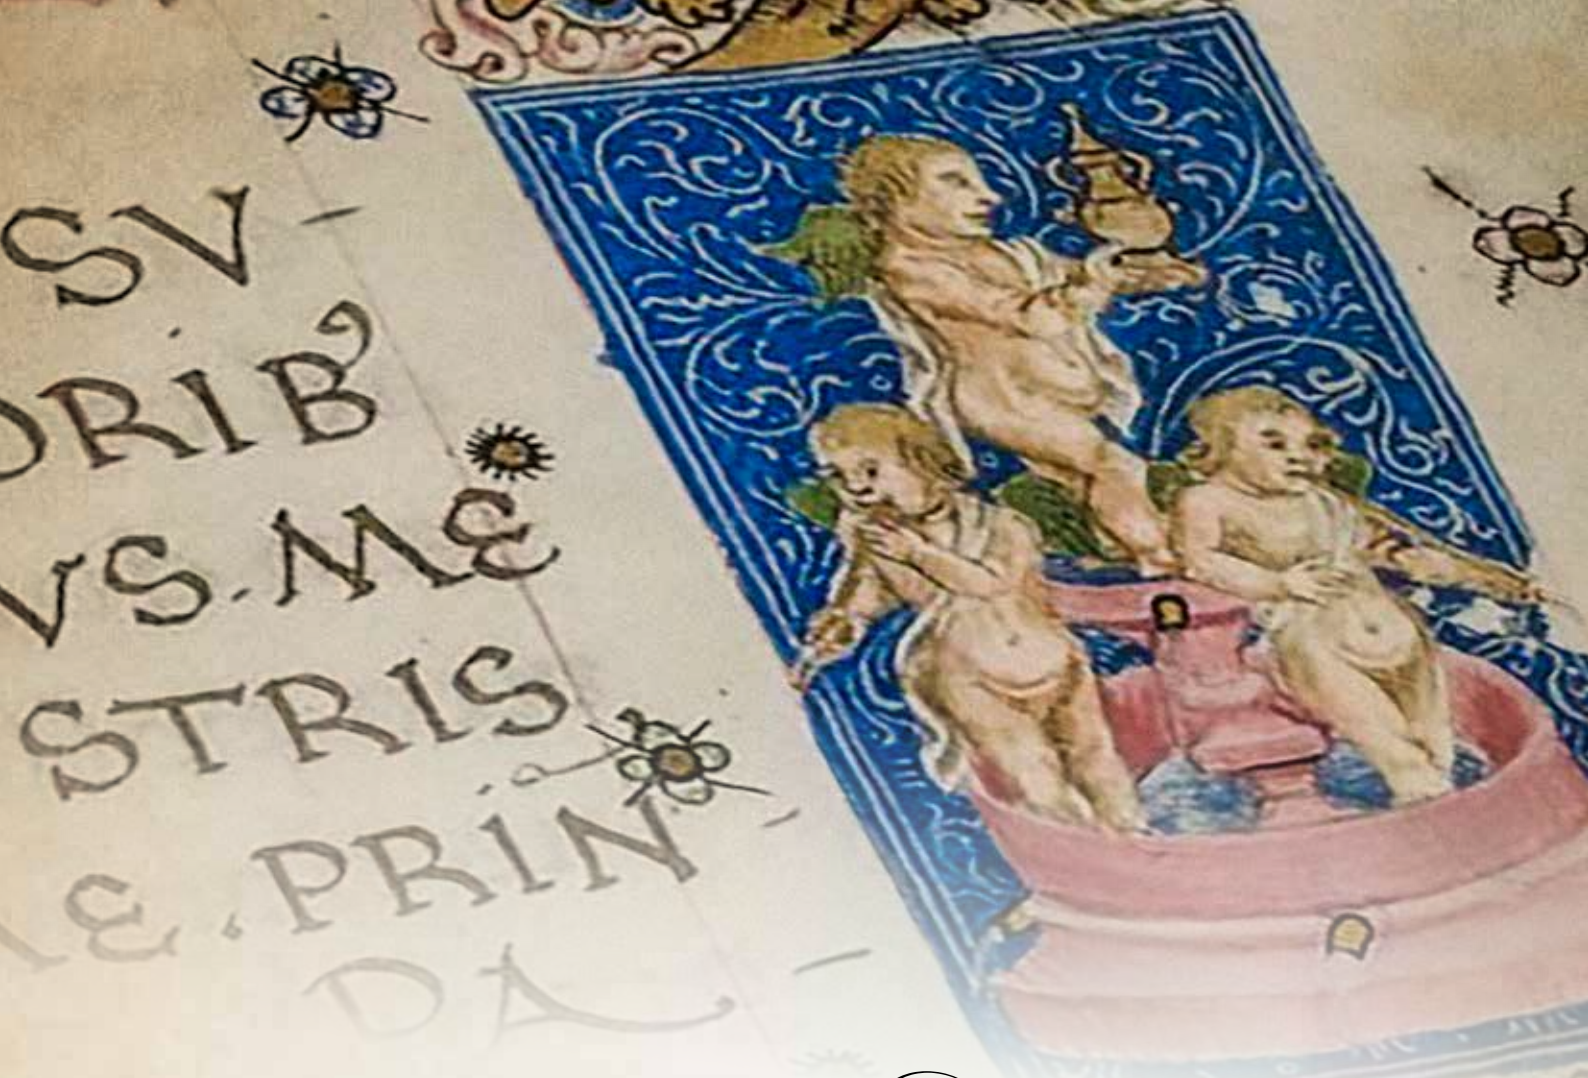 SV
ORIB⁹
VS.ME
STRIS
AE.PRIN
DA